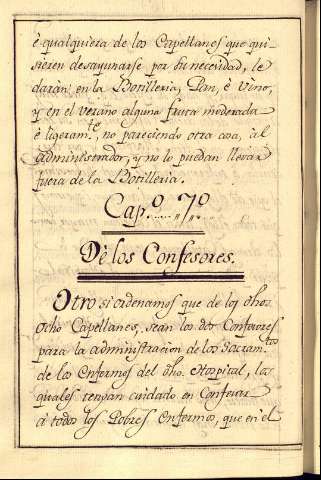 è qualquiera de los Capellanes que qui-
sieren desayunarse por su necesidad, le
daran en la Botilleria, Pan, è Vino,
y en el verano alguna fruta moderada
è ligeram.te, no pareciendo otra cosa, al
administrador, y no lo puedan llevar
fuera de la Botilleria.
Cap.o 7.o
Dè los Confesores.
Otro si ordenamos que de los dhos
ocho Capellanes, sean los dos Confesores
para la administracion de los Sacram.tos
de los Enfermos del dho. Hospital, los
quales tengan cuidado en Confesar
á todos los Pobres Enfermos, que en el